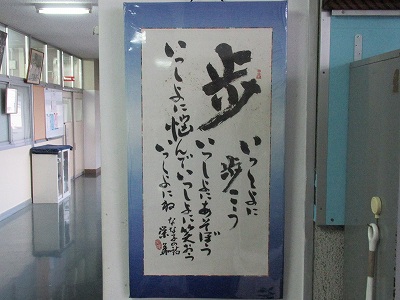 歩
いっしょに
歩こう
いっしょにあそぼう
いっしょに悩んでいっしょに笑おう
いっしょにね